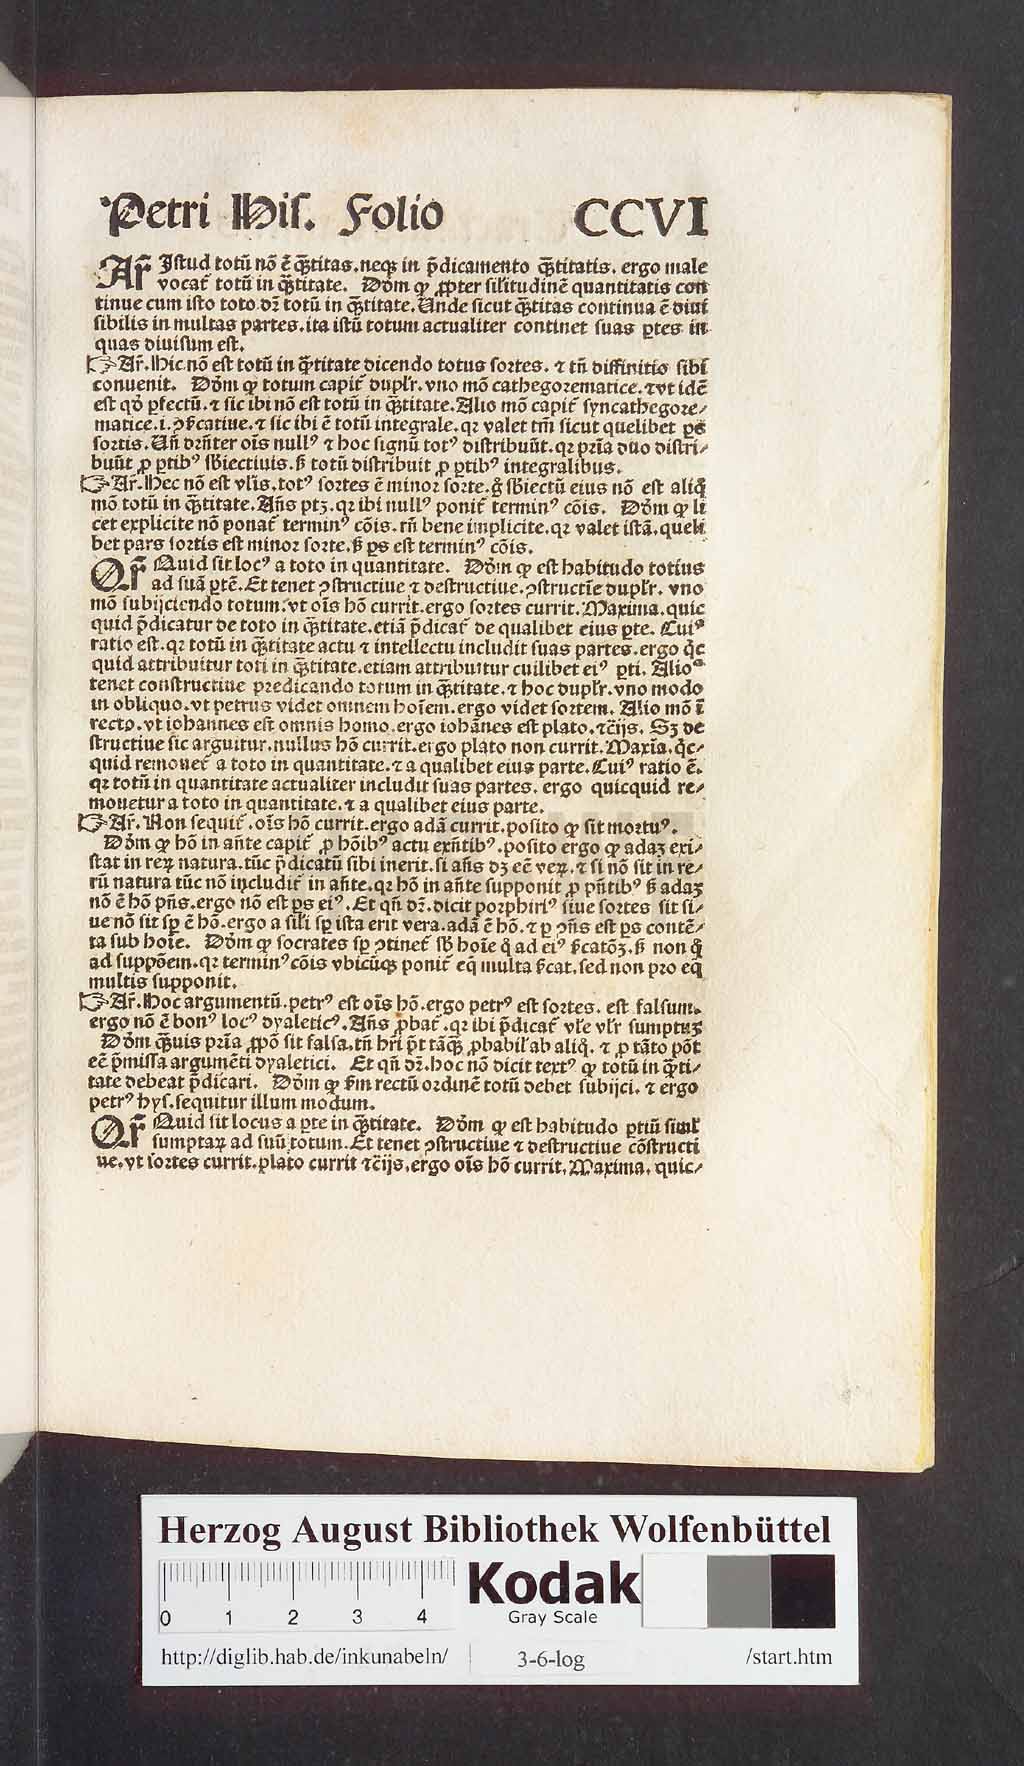 Petri His. Folio CCVI
Ar̄ Istud totū nō ē q̄titas.neqꝫ in p̄dicamento q̄titatis. ergo male
vocat̄ totū in q̄titate. Dōm ꝙ ꝓpter sil̄itudinē quantitatis con
tinue cum isto toto.dr̄ totū in q̄titate.Unde sicut q̄titas continua ē diui
sibilis in multas partes.ita istū totum actualiter continet suas ꝑtes in
quas diuisum est.
☞Ar̄.Hic nō est totū in q̄titate dicendo totus sortes. ⁊ tn̄ diffinitio sibi
conuenit. Dōm ꝙ totum capit̄ dupl̄r. vno mō cathegorematice. ⁊ vt idē
est qḋ ꝑfectū.⁊ sic ibi nō est totū in q̄titate.Alio mō capit̄ syncathegore⸗
matice.i.ꝯf̄catiue.⁊ sic ibi ē totū integrale.qꝛ valet tm̄ sicut quelibet ps
sortis.Uñ dr̄nter oīs nullꝰ ⁊ hoc signū totꝰ distribuūt.qꝛ pr̄ia duo distri⸗
buūt ꝓ ꝑtibꝰ sb̄iectiuis.ß totū distribuit ꝓ ꝑtibꝰ integralibus.
☞Ar̄.Hec nō est vl̄is.totꝰ sortes ē minor sorte.g̊ sb̄iectū eius nō est aliq̊
mō totū in q̄titate.Añs ptꝫ.qꝛ ibi nullꝰ ponit̄ terminꝰ cōis. Dōm ꝙ li
cet explicite nō ponat̄ terminꝰ cōis. tñ bene implicite.qꝛ valet istā.queli
bet pars sortis est minor sorte.ß ps est terminꝰ cōis.
Qr̄ Quid sit locꝰ a toto in quantitate. Dōm ꝙ est habitudo totius
ad suā ꝑtē.Et tenet ꝯstructiue ⁊ destructiue.ꝯstructīe dupl̄r. vno
mō subijciendo totum.vt oīs hō currit.ergo sortes currit.Maxima.quic
quid p̄dicatur de toto in q̄titate.etiā p̄dicat̄ de qualibet eius ꝑte. Cuiꝰ
ratio est.qꝛ totū in q̄titate actu ⁊ intellectu includit suas partes.ergo q̊c
quid attribuitur toti in q̄titate.etiam attribuitur cuilibet eiꝰ ꝑti. Alioᵒ
tenet constructiue predicando totum in q̄titate.⁊ hoc dupl̄r.vno modo
in obliquo.vt petrus videt omnem hoīem.ergo videt sortem. Alio mō ī
recto.vt iohannes est omnis homo.ergo iohānes est plato.⁊c̄ijs. Sꝫ de
structiue sic arguitur.nullus hō currit.ergo plato non currit.Maxīa.q̊c⸗
quid remouet̄ a toto in quantitate.⁊ a qualibet eius parte.Cuiꝰ ratio ē.
qꝛ totū in quantitate actualiter includit suas partes. ergo quicquid re⸗
mouetur a toto in quantitate.⁊ a qualibet eius parte.
☞Ar̄.Non sequit̄.oīs hō currit.ergo adā currit.posito ꝙ sit mortuꝰ.
Dōm ꝙ hō in añte capit̄ ꝓ hōibꝰ actu exñtibꝰ.posito ergo ꝙ adaꝫ exi⸗
stat in reꝝ natura.tūc p̄dicatū sibi inerit.si añs dꝫ eē veꝝ.⁊ si nō sit in re⸗
rū natura tūc nō includit̄ in añte.qꝛ hō in añte supponit ꝓ pñtibꝰ ß adaꝫ
nō ē hō pñs.ergo nō est ps eiꝰ.Et qñ dr̄.dicit porphiriꝰ siue sortes sit si⸗
ue nō sit sꝑ ē hō.ergo a sil̄i sꝑ ista erit vera.adā ē hō.⁊ ꝑ ꝯñs est ps contē⸗
ta sub hoīe. Dōm ꝙ socrates sꝑ ꝯtinet̄ sb̄ hoīe q̊ ad eiꝰ f̄catōꝫ.ß non q̊
ad suppōem.qꝛ terminꝰ cōis vbicūqꝫ ponit̄ eq̄ multa f̄cat.sed non pro eq̄
multis supponit.
☞Ar̄.Hoc argumentū.petrꝰ est oīs hō.ergo petrꝰ est sortes. est falsum.
ergo nō ē bonꝰ locꝰ dyaleticꝰ.Añs ꝓbat̄.qꝛ ibi p̄dicat̄ vl̄e vl̄r sumptuꝫ
Dōm q̄uis pr̄ia ꝓpō sit falsa.tñ hr̄i p̄t tāq̄ ꝓbabil̄ ab aliq̊. ⁊ ꝓ tāto pōt
eē p̄missa argumēti dyaletici. Et qñ dr̄.hoc nō dicit textꝰ ꝙ totū in q̄ti⸗
tate debeat p̄dicari. Dōm ꝙ f̄m rectū ordinē totū debet subijci. ⁊ ergo
petrꝰ hys.sequitur illum modum.
Qr̄ Quid sit locus a ꝑte in q̄titate. Dōm ꝙ est habitudo ꝑtiū siml̄
sumptaꝝ ad suū totum.Et tenet ꝯstructiue ⁊ destructiue cōstructi
ue.vt sortes currit.plato currit ⁊c̄ijs.ergo oīs hō currit.Maxima. quic⸗
Herzog August Bibliothek Wolfenbüttel
0 1 2 3 4
Kodak
Gray Scale
http://diglib.hab.de/inkunabeln/ 3-6-log /start.htm